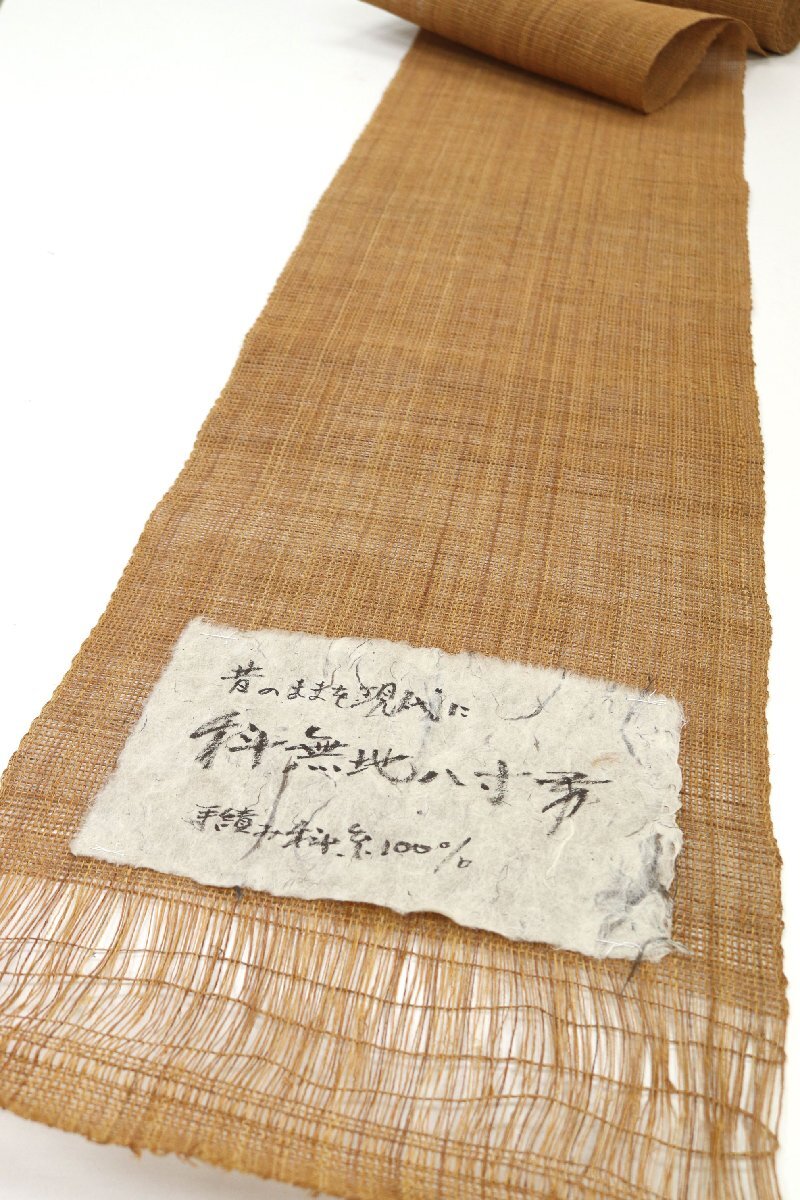 昔のままを現代に
科無地八寸帯
手績み科糸100%